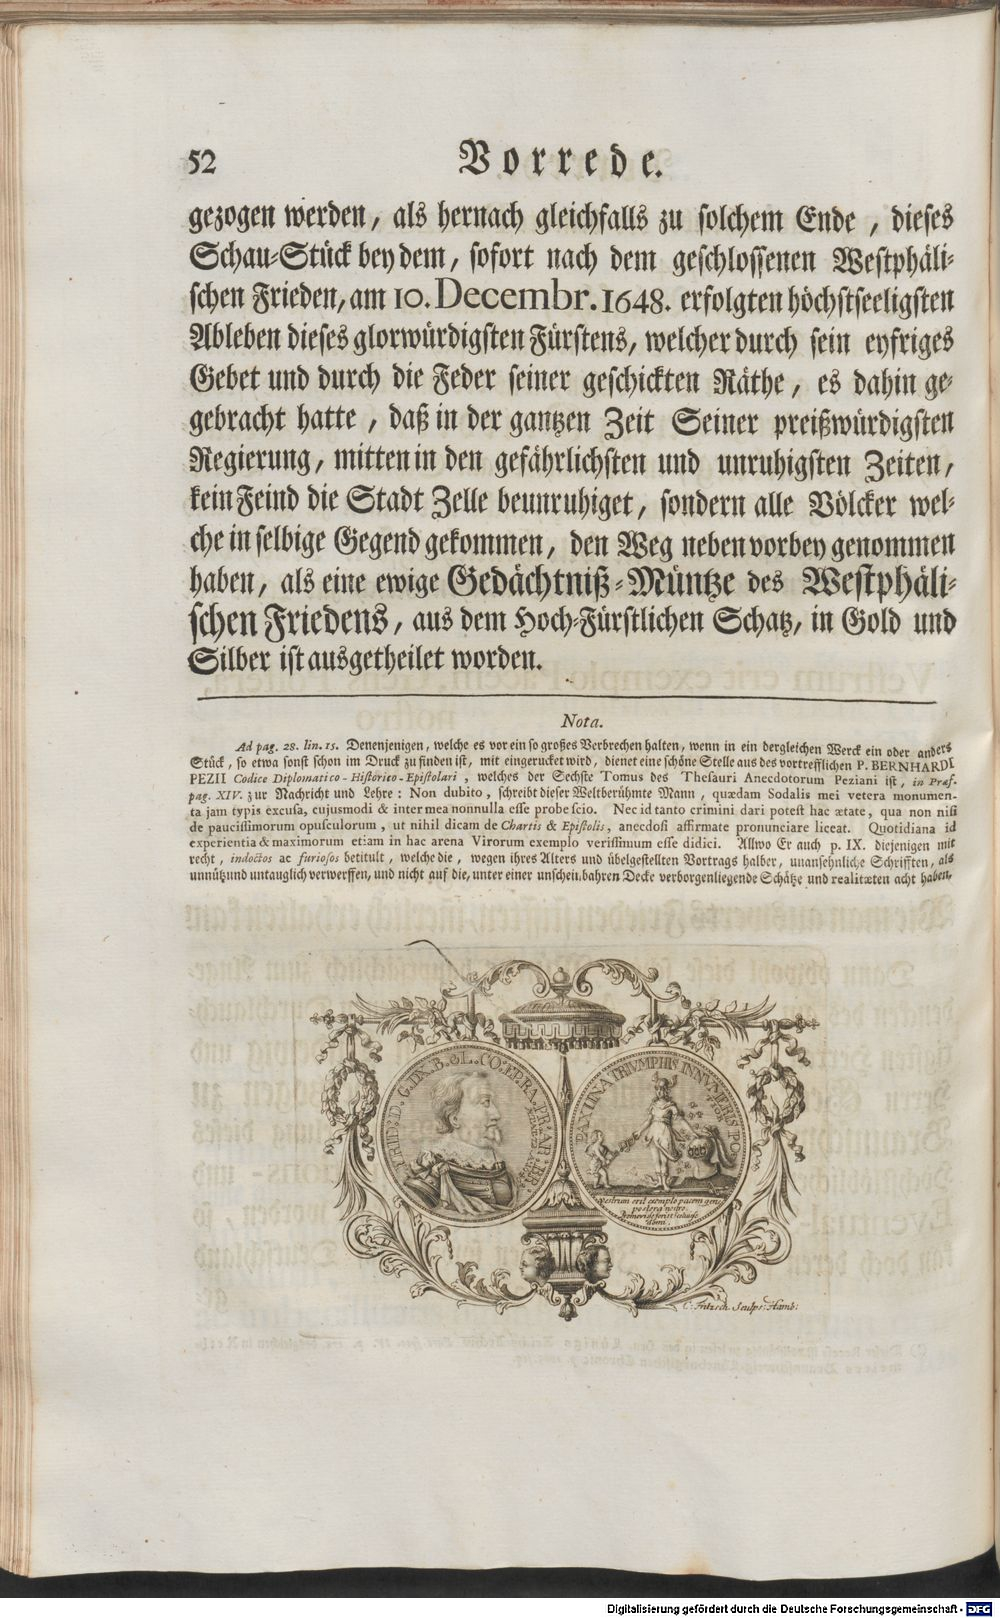 52 Vorrede.
gezogen werden, als hernach gleichfalls zu solchem Ende, dieses
Schau-Stück bey dem, sofort nach dem geschlossenen Westphäli-
schen Frieden, am 10. Decembr. 1648. erfolgten höchstseeligsten
Ableben dieses glorwürdigsten Fürstens, welcher durch sein eyfriges
Gebet und durch die Feder seiner geschickten Räthe, es dahin ge-
gebracht hatte, daß in der gantzen Zeit Seiner preißwürdigsten
Regierung, mitten in den gefährlichsten und unruhigsten Zeiten,
kein Feind die Stadt Zelle beunruhiget, sondern alle Völcker wel-
che in selbige Gegend gekommen, den Weg neben vorbey genommen
haben, als eine ewige Gedächtniß-Müntze des Westphäli-
schen Friedens, aus dem Hoch-Fürstlichen Schatz, in Gold und
Silber ist ausgetheilet worden.
Nota.
Ad pag. 28. lin. 15. Denenjenigen, welche es vor ein so großes Verbrechen halten, wenn in ein dergleichen Werck ein oder anders
Stück, so etwa sonst schon im Druck zu finden ist, mit eingerucket wird, dienet eine schöne Stelle aus des vortrefflichen P. BERNHARDI
PEZII Codice Diplomatico-Historico-Epistolari, welches der Sechste Tomus des Thesauri Anecdotorum Peziani ist, in Præf.
pag. XIV. zur Nachricht und Lehre: Non dubito, schreibt dieser Weltberühmte Mann, quædam Sodalis mei vetera monumen-
ta jam typis excusa, cujusmodi & inter mea nonnulla esse probe scio. Nec id tanto crimini dari potest hac ætate, qua non nisi
de paucissimorum opusculorum, ut nihil dicam de Chartis & Epistolis, anecdosi affirmate pronunciare liceat. Quotidiana id
experientia & maximorum etiam in hac arena Virorum exemplo verissimum esse didici. Allwo Er auch p. IX. diejenigen mit
recht, indoctos ac furiosos betitult, welche die, wegen ihres Alters und übelgestellten Vortrags halber, unansehnliche Schrifften, als
unnütz und untauglich verwerffen, und nicht auf die, unter einer unscheinbahren Decke verborgenliegende Schätze und realitæten acht haben.
FRID: D. G. DX. B. & L. CO: EP. RA. PR: AR: BR
PAX UNA TRIUMPHIS INNUMERIS PO
Vestrum erit exemplo pacem gens
postera nostro
C. Fritzsch Sculps: Hamb: